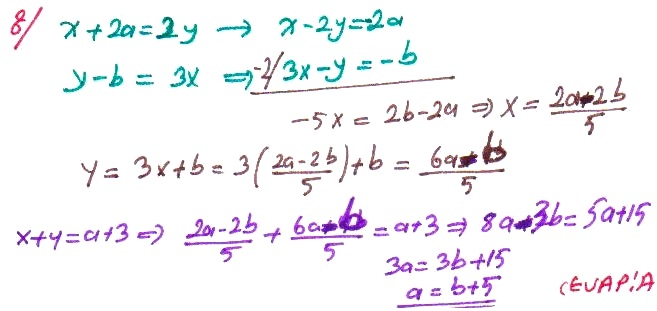 8/ x+2a=2y → x-2y=-2a
y-b = 3x ⇒ -2/ 3x-y = -b
-5x = 2b-2a ⇒ x = (2a-2b)/5
y = 3x+b = 3((2a-2b)/5)+b = (6a-b)/5
x+y=a+3 ⇒ (2a-2b)/5 + (6a-b)/5 = a+3 ⇒ 8a-3b=5a+15
3a=3b+15
a=b+5
CEVAP:A